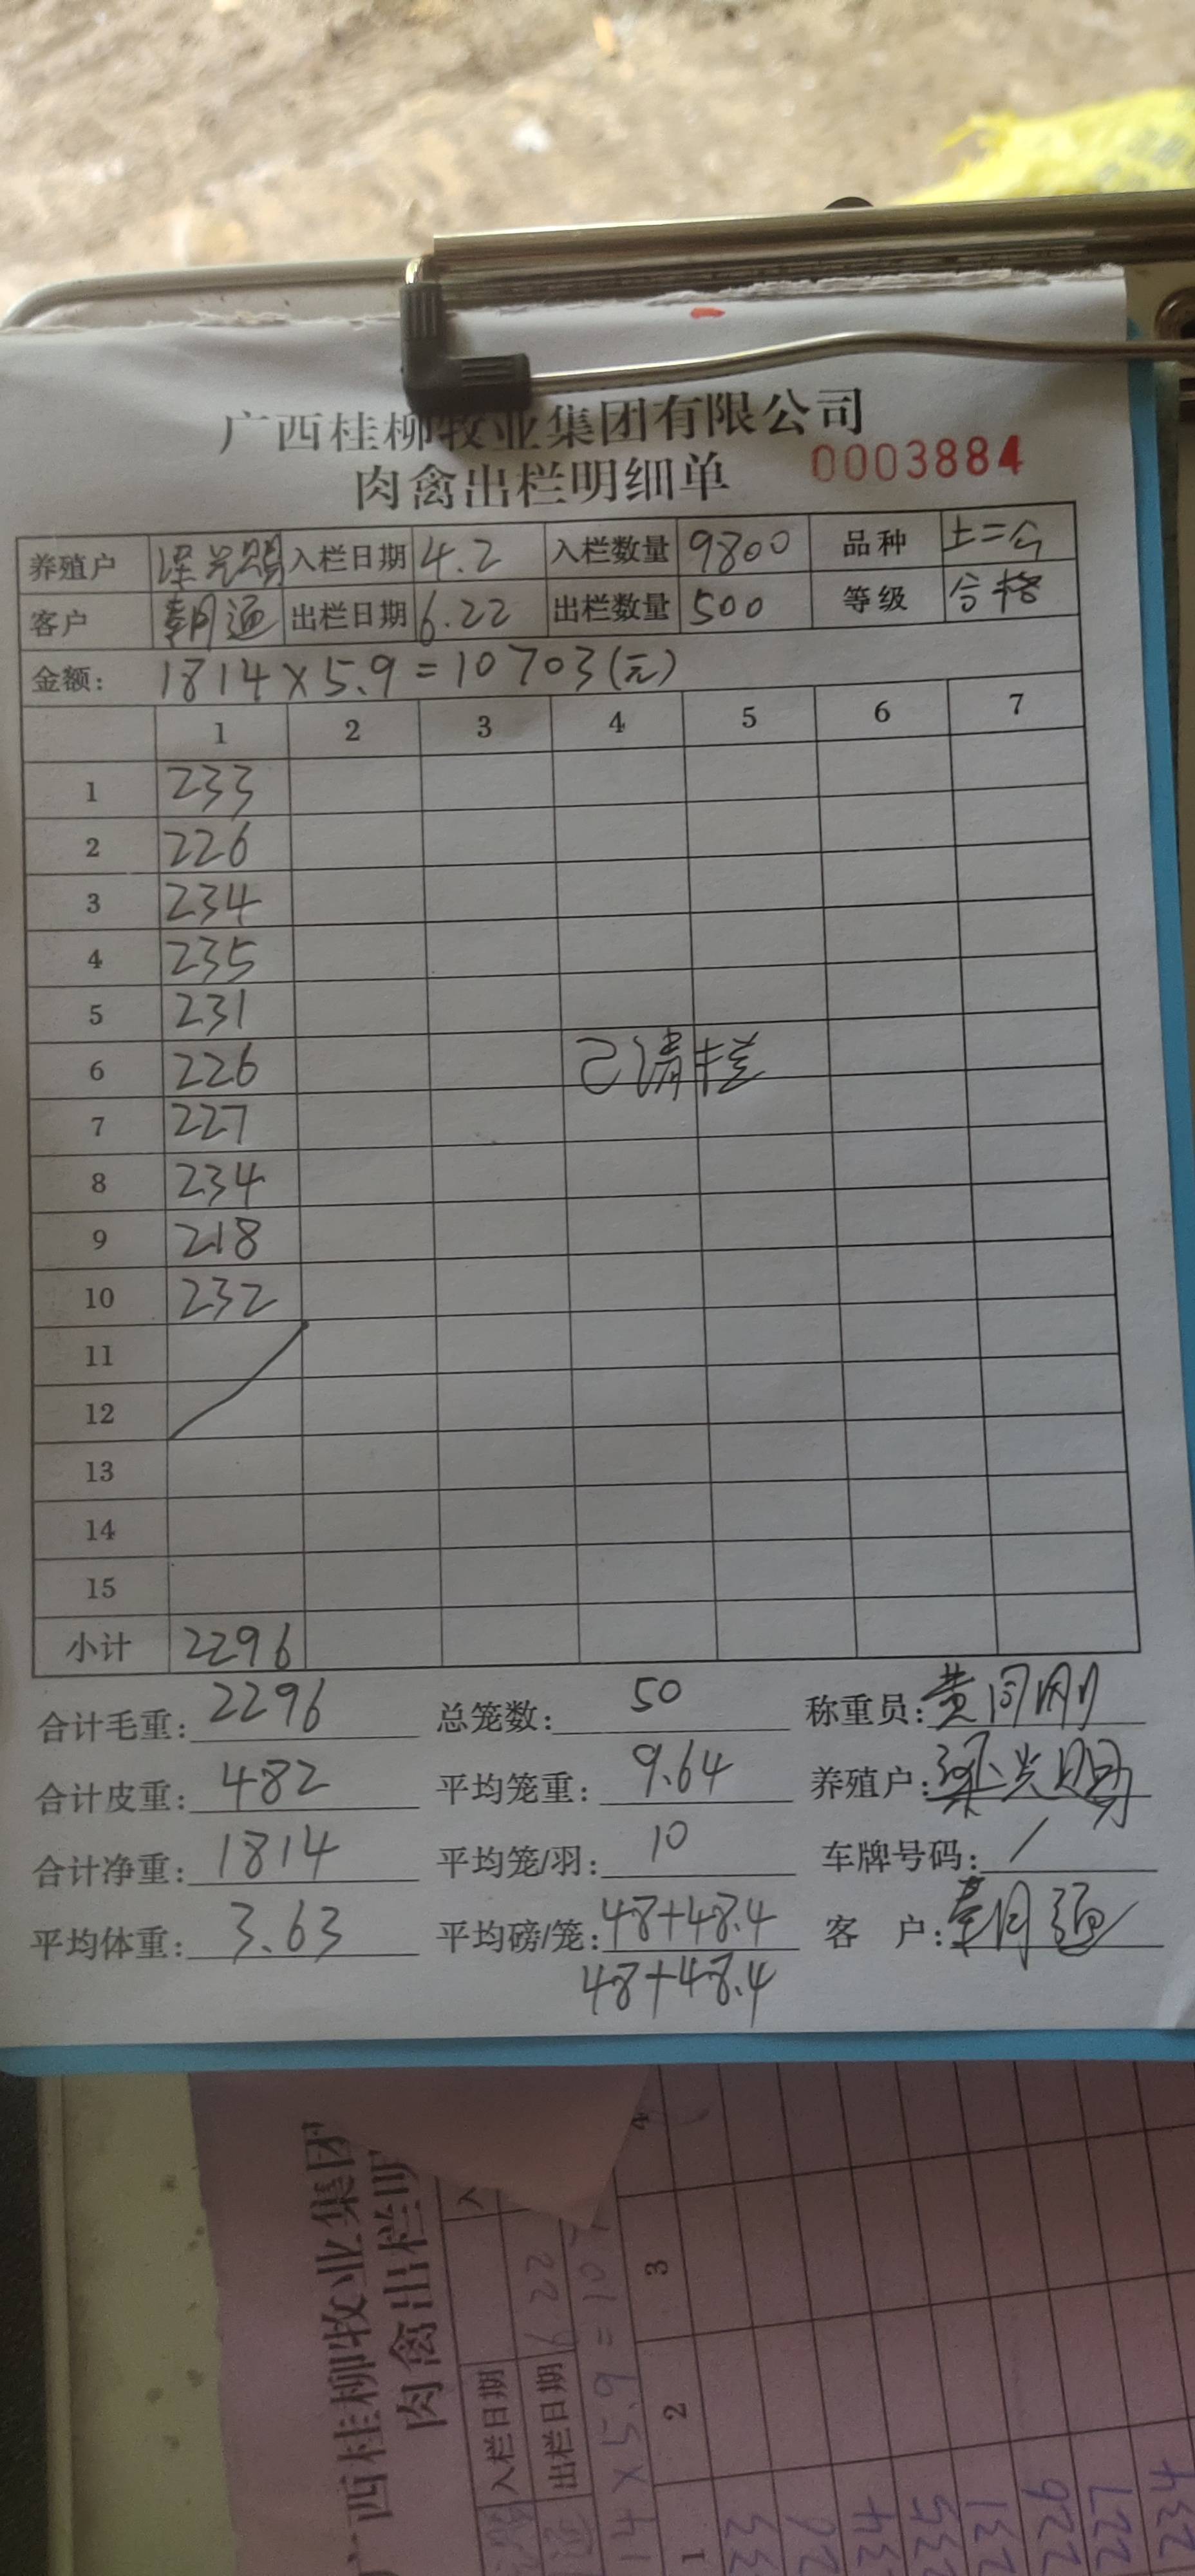 广西桂柳牧业集团有限公司
肉禽出栏明细单 0003884
养殖户 梁光赐 入栏日期 4.2 入栏数量 9800 品种 土二公
客户 出栏日期 6.22 出栏数量 500 等级 合格
金额: 1814×5.9=10703(元)
1 2 3 4 5 6 7
1 233
2 226
3 234
4 235
5 231
6 226 已清栏
7 227
8 234
9 218
10 232
11
12
13
14
15
小计 2296
合计毛重: 2296 总笼数: 50 称重员: 黄同刚
合计皮重: 482 平均笼重: 9.64 养殖户: 梁光赐
合计净重: 1814 平均笼/羽: 10 车牌号码: /
平均体重: 3.63 平均磅/笼: 48+48.4 客 户:
48+48.4
广西桂柳牧业集团
肉禽出栏明
入栏日期
出栏日期 6.22
14×5.9=107
1 2 3 4
33
26
234
235
231
226
227
234